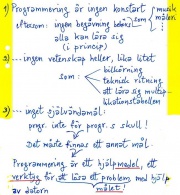 1) Programmering är ingen konstart { musik
måleri
eftersom: ingen begåvning behövs
alla kan lära sig
(i princip)
2) ...ingen vetenskap heller, lika litet
som: bilkörning
teknisk ritning
att lära sig multip-
likationstabellen
3) ... inget självändamål:
progr. inte för progr.s skull!
Det måste finnas ett annat mål.
Programmering är ett hjälpmedel, ett
verktyg för att lösa ett problem med hjälp
av datorn målet!